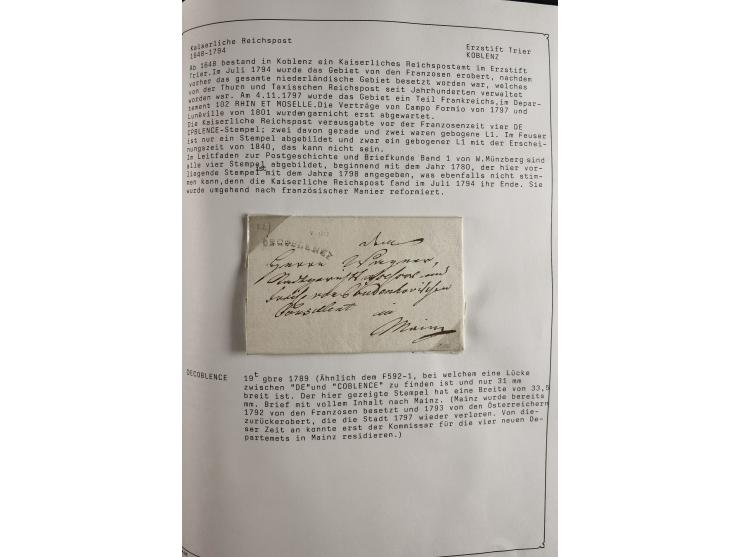 Kaiserliche Reichspost
1648-1794
Erzstift Trier
KOBLENZ
Ab 1648 bestand in Koblenz ein Kaiserliches Reichspostamt im Erzstift
Trier.Im Juli 1794 wurde das Gebiet von den Franzosen erobert, nachdem
vorher das gesamte niederländische Gebiet besetzt worden war, welches
von der Thurn und Taxisschen Reichspost seit Jahrhunderten verwaltet
worden war. Am 4.11.1797 wurde das Gebiet ein Teil Frankreichs,im Depar-
tement 102 RHIN ET MOSELLE.Die Verträge von Campo Formio von 1797 und
Lunéville von 1801 wurden garnicht erst abgewartet.
Die Kaiserliche Reichspost verausgabte vor der Franzosenzeit vier DE
CPBLENCE-Stempel; zwei davon gerade und zwei waren gebogene L1. Im Feuser
ist nur ein Stempel abgebildet und zwar ein gebogener L1 mit der Erschei-
nungszeit von 1840, das kann nicht sein.
Im Leitfaden zur Postgeschichte und Briefkunde Band 1 von W.Münzberg sind
alle vier Stempel abgebildet, beginnend mit dem Jahr 1780, der hier vor-
liegende Stempel ist mit dem Jahre 1798 angegeben, was ebenfalls nicht stim-
men kann,denn die Kaiserliche Reichspost fand im Juli 1794 ihr Ende. Sie
wurde umgehend nach französischer Manier reformiert.
DECOBLENCE
dem
Herrn Wagner,
in
Mainz
DECOBLENCE 19t gbre 1789 (Ähnlich dem F592-1, bei welchem eine Lücke
zwischen "DE"und "COBLENCE" zu finden ist und nur 31 mm
breit ist. Der hier gezeigte Stempel hat eine Breite von 33,5
mm. Brief mit vollem Inhalt nach Mainz. (Mainz wurde bereits
1792 von den Franzosen besetzt und 1793 von den Österreichern
zurückerobert, die die Stadt 1797 wieder verloren. Von die-
ser Zeit an konnte erst der Kommissar für die vier neuen De-
partemets in Mainz residieren.)